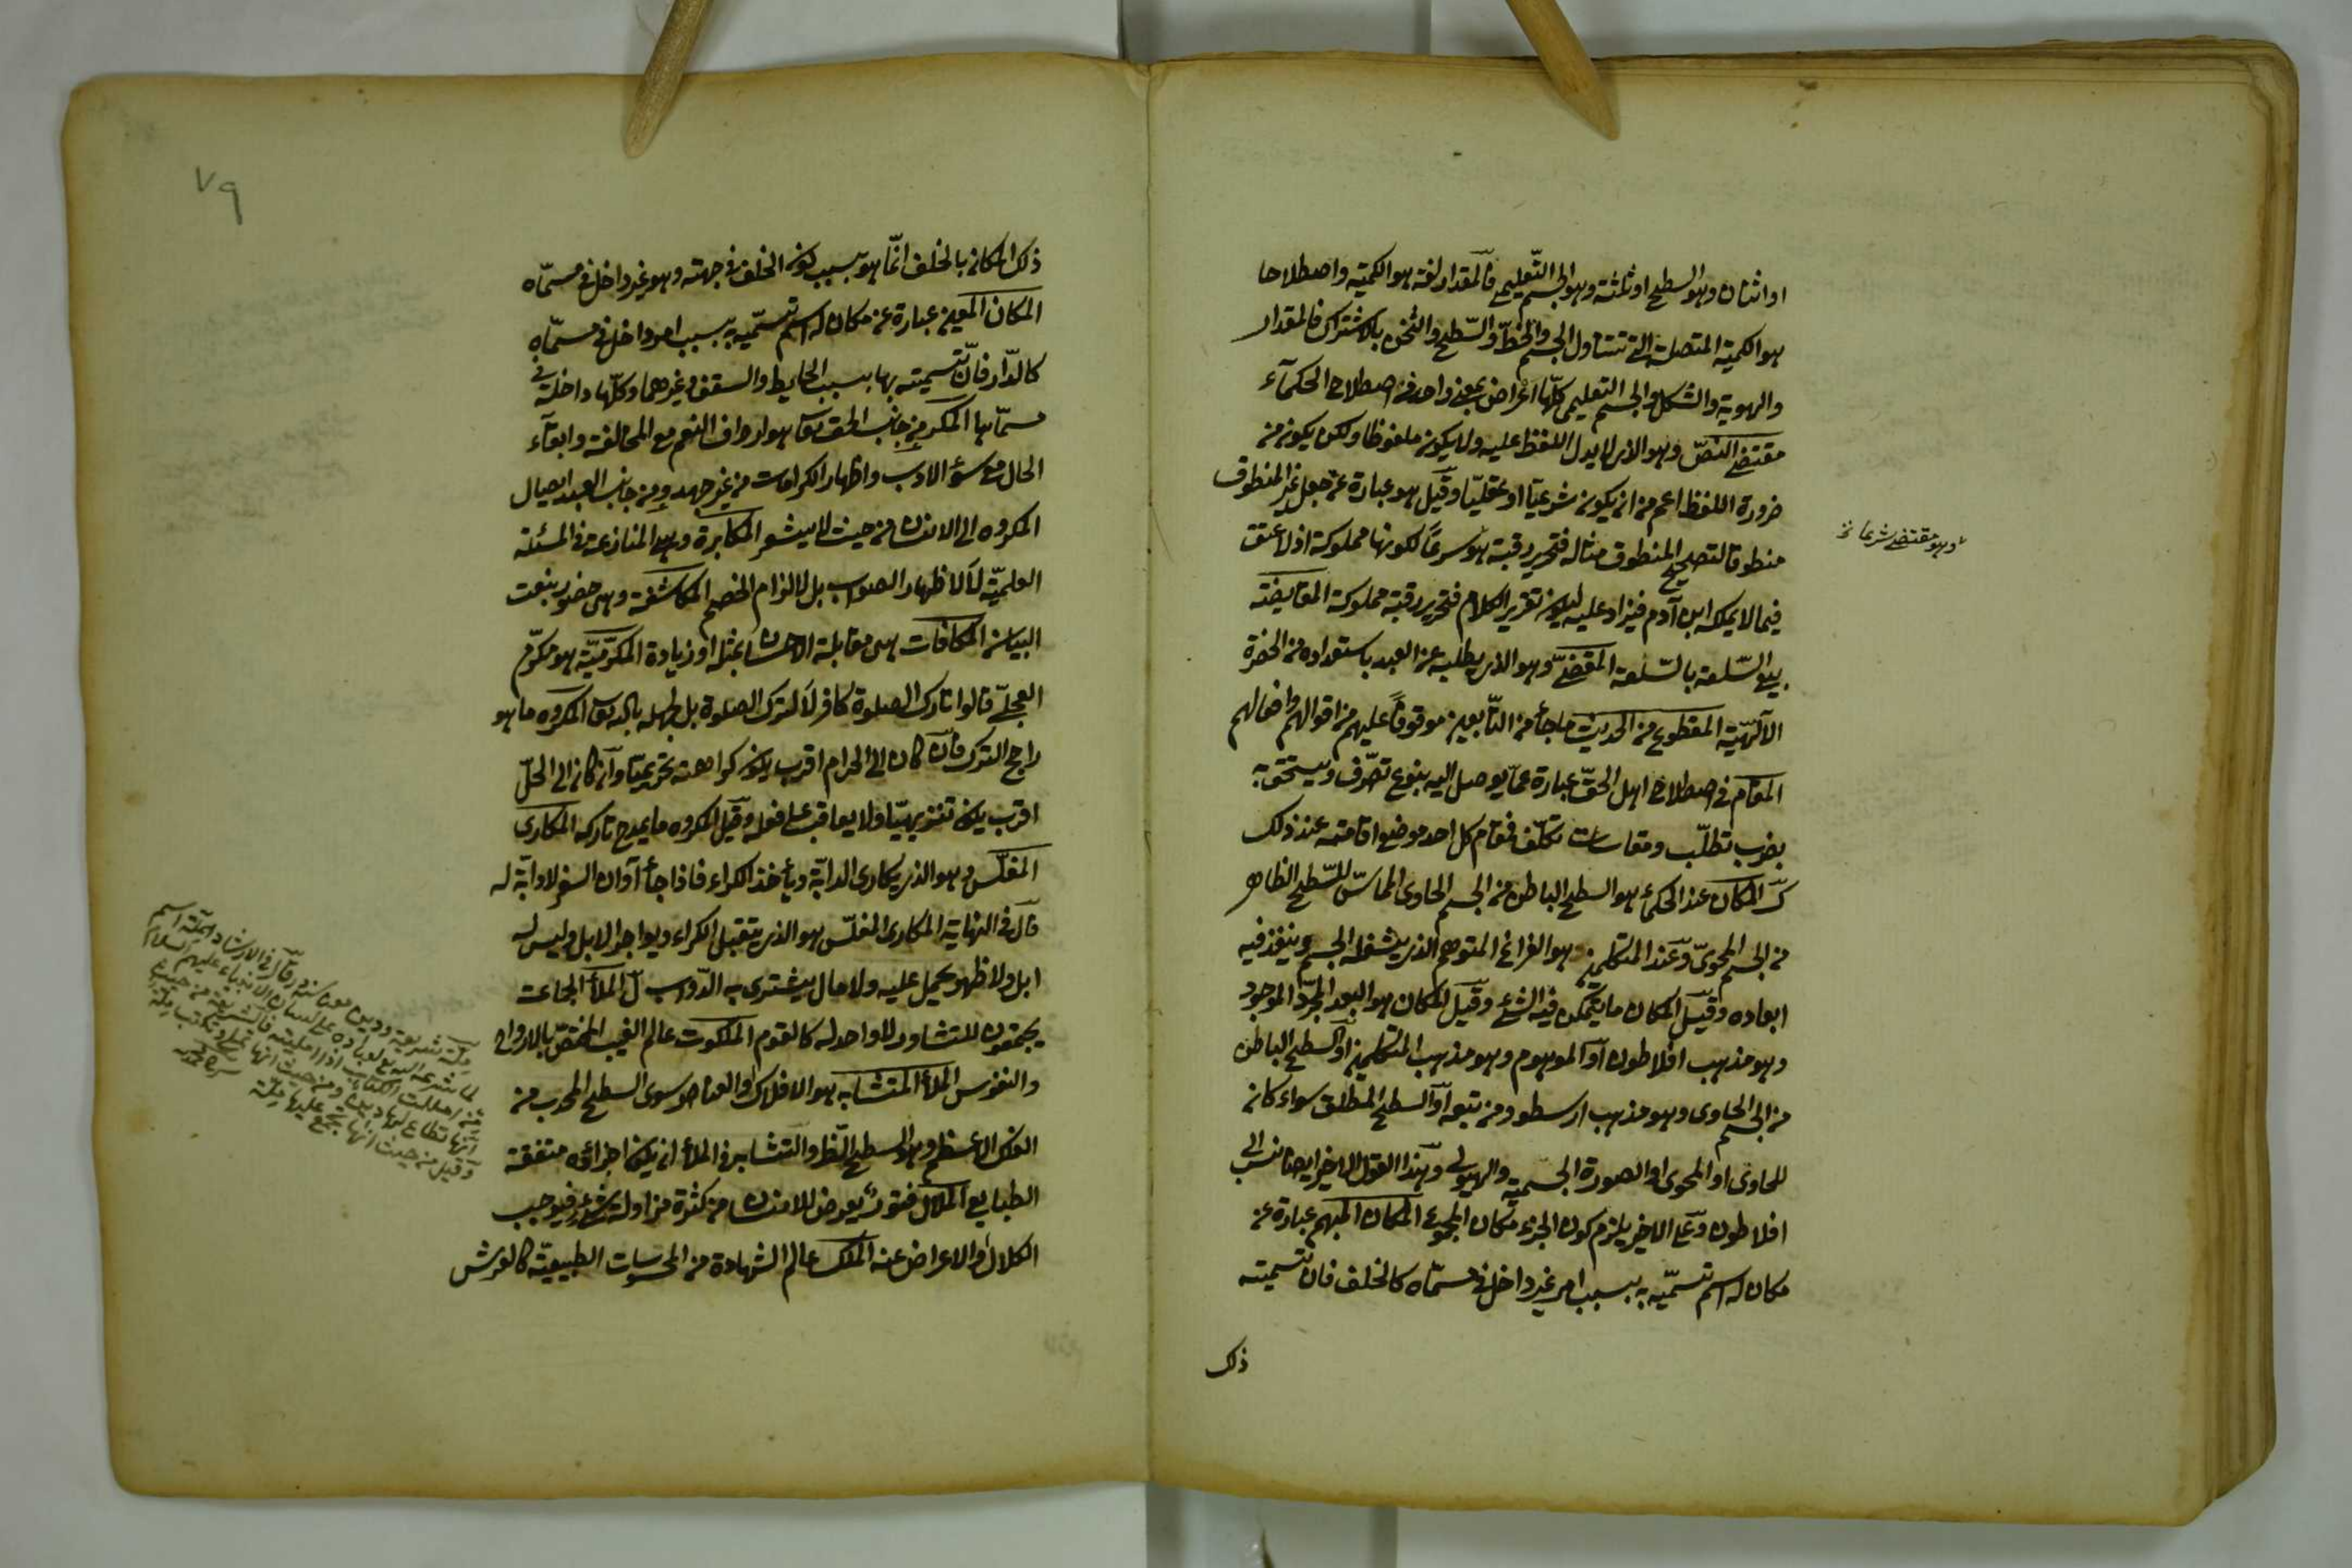 او اثنان وهو السطح او ثلثة وهو الجسم التعليمى فالمقدار لغة هو الكمية واصطلاحا
هو الكمية المتصلة التى تتناول الجسم والخط والسطح والثخن بالاشتراك فالمقدار
والهوية والشكل والجسم التعليمى كلها اعراض بمعنى واحد فى اصطلاح الحكماء
مقتضى النص وهو الذى لا يدل اللفظ عليه ولا يكون ملفوظا ولكن يكون من
ضرورة اللفظ اعم من ان يكون شرعيا او عقليا وقيل هو عبارة عن جعل غير المنطوق
منطوقا لتصحيح المنطوق مثاله فتحرير رقبة هو شرعا لكونها مملوكة اذ لا عتق
وهو مقتضى شرعا
فيما لا يملكه ابن آدم فيزاد عليه ليكون تقرير الكلام فتحرير رقبة مملوكة المقايضة
بيع السلعة بالسلعة المقتضى وهو الذى يطلبه عن العبد باستعداده من الحضرة
الآلهية المقطوع من الحديث ما جاء من التابعين موقوفا عليهم من اقوالهم وافعالهم
المقام فى اصطلاح اهل الحق عبارة عما يوصل اليه بنوع تصرف ويتحقق به
بضرب تطلب ومقاسات تكلف فمقام كل احد موضع اقامته عند ذلك
المكان عند الحكماء هو السطح الباطن من الجسم الحاوى المماس للسطح الظاهر
من الجسم المحوى وعند المتكلمين هو الفراغ المتوهم الذى يشغله الجسم وينفذ فيه
ابعاده وقيل المكان ما يتمكن فيه الشئ وقيل المكان هو البعد المجرد الموجود
وهو مذهب افلاطون او الموهوم وهو مذهب المتكلمين او السطح الباطن
من الجسم الحاوى وهو مذهب ارسطو ومن تبعه او السطح المطلق سواء كان
للحاوى او المحوى او الصورة الجسمية والهيولى وهذا القول الاخير ايضا نسب الى
افلاطون وعلى الاخير يلزم كون الجزء مكان المجموع المكان المبهم عبارة عن
مكان له اسم تسميه به بسبب امر غير داخل فى مسماه كالخلف فان تسميته
ذلك
٧٩
ذلك المكان بالخلف انما هو بسبب كون الخلف فى جهته وهو غير داخل فى مسماه
المكان المعين عبارة عن مكان له اسم تسميه به بسبب امر داخل فى مسماه
كالدار فان تسميته بها بسبب الحايط والسقف وغيرهما وكلها داخلة فى
مسماها المكر من جانب الحق تعا هو ارداف النعم مع المخالفة وابقاء
الحال مع سوء الادب واظهار الكرامات من غير جهد ومن جانب العبد ايصال
المكروه الى الانسان من حيث لا يشعر المكابرة وهى المنازعة فى المسئلة
العلمية لا لاظهار الصواب بل لالزام الخصم المكاشفة وهى حضور بنعت
البيان المكافات هى مقابلة الاحسان بمثله او زيادة المكرمية هو مكرم
العجلى قالوا تارك الصلوة كافر لا لترك الصلوة بل لجهله بالله تعا المكروه ما هو
راجح الترك فان كان الى الحرام اقرب يكون كراهته تحريميا وان كان الى الحل
اقرب يكون تنزيهيا ولا يعاقب على فعله وقيل المكروه ما يمدح تاركه المكارى
المفلس وهو الذى يكارى الدابة ويأخذ الكراء فاذا جاء آوان السفر لا دابة له
قال فى النهاية المكارى المفلس هو الذى يتقبل الكراء ويواجر الابل وليس له
ابل ولا ظهر يحمل عليه ولا مال يشترى به الدواب الملأ الجماعة
يجتمعون للتشاور لا واحد له كالقوم الملكوت عالم الغيب المختص بالارواح
والنفوس الملأ المتشابه هو الافلاك والعناصر سوى السطح المحدب من
الفلك الاعظم وهو السطح الظاهر والتشابه فى الملأ ان يكون اجزاؤه متفقة
الطبايع الملال فتور يعرض للانسان من كثرة مزاولة شئ فيوجب
الكلال والاعراض عنه الملك عالم الشهادة من المحسوسات الطبيعية كالعرش
ملة شريعة ودين قال فى الارشاد الملة اسم
لما شرعه الله لعباده على لسان الانبياء عليهم السلام
من امللت الكتاب اذا امليته فالشريعة من حيث
انها تطاع لها دين ومن حيث انها تملى وتكتب ملة
وقيل من حيث انها يجمع عليها ملة